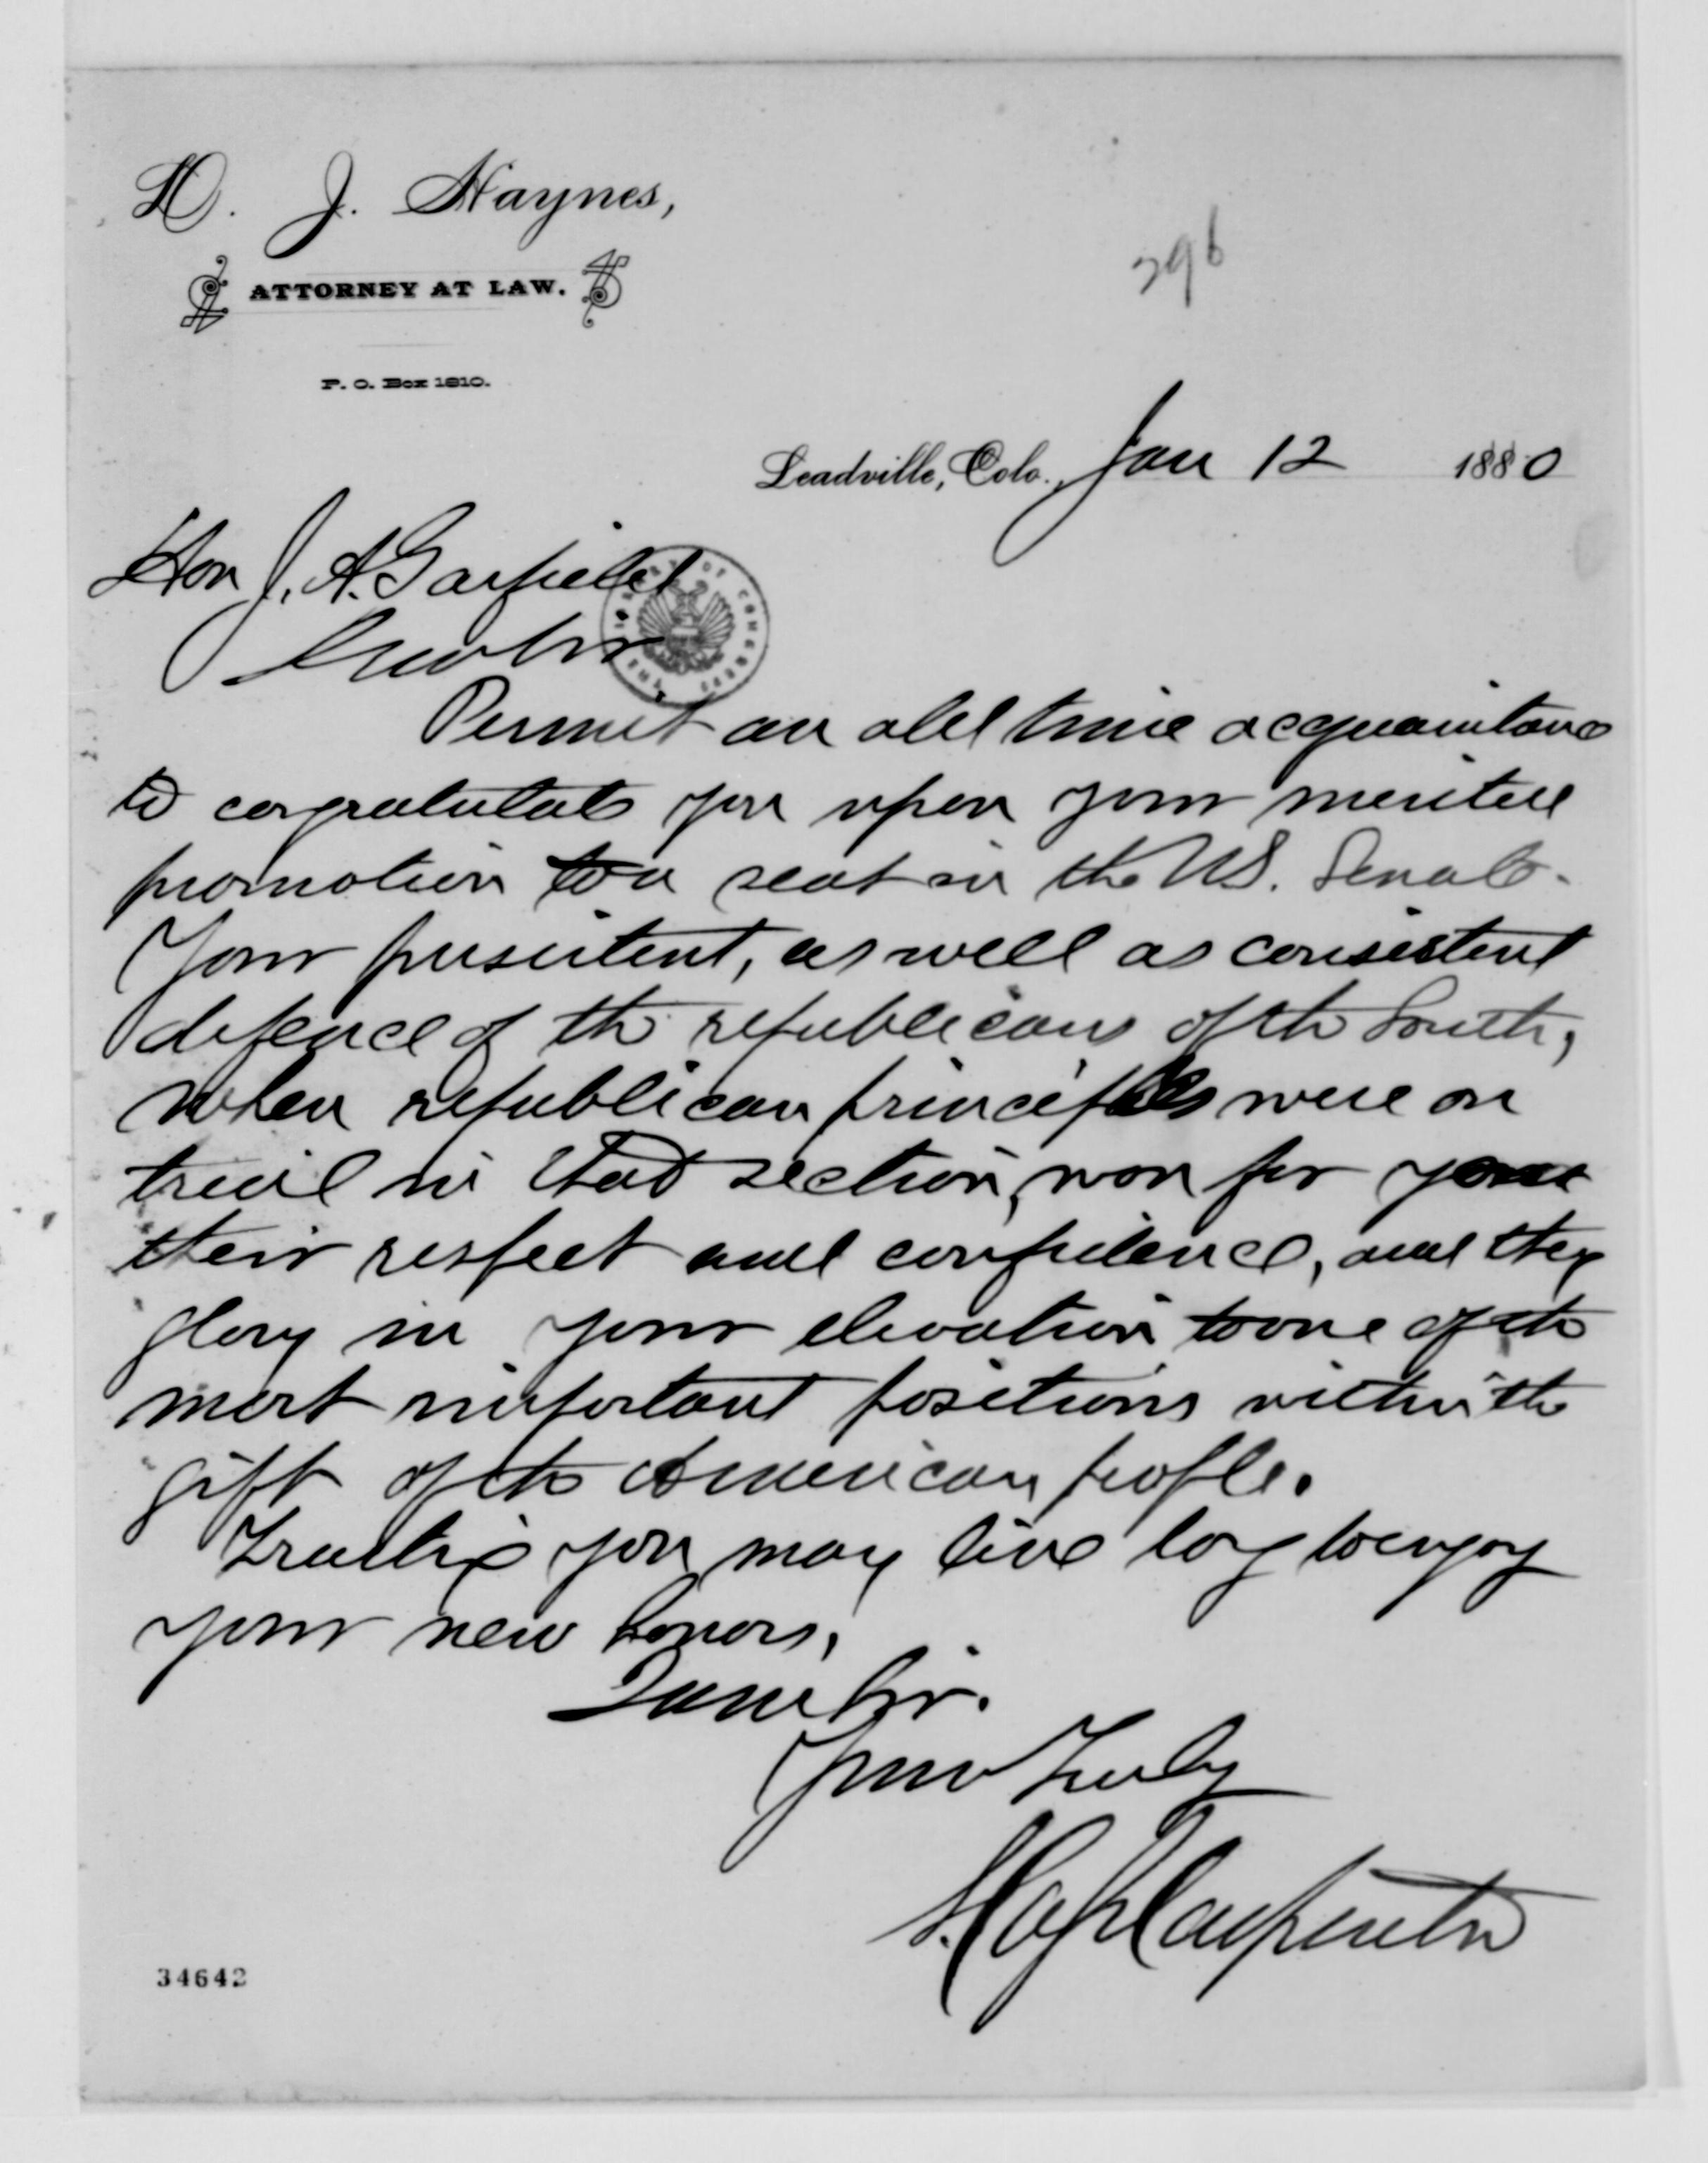 D. J. Haynes,
ATTORNEY AT LAW.
P. O. Box 1810.
396
Leadville, Colo., Jan 12 1880
Hon J. A. Garfield
Dear Sir
Permit an old time acquaintance
to congratulate you upon your merited
promotion to a seat in the U.S. Senate.
Your persistent, as well as consistent
defence of the republicans of the South,
when republican principles were on
trial in that section, won for you
their respect and confidence, and they
glory in your elevation to one of the
most important positions within the
gift of the American people.
Trusting you may live long to enjoy
your new honors,
I am Sir.
Yours Truly
Carpenter
34642